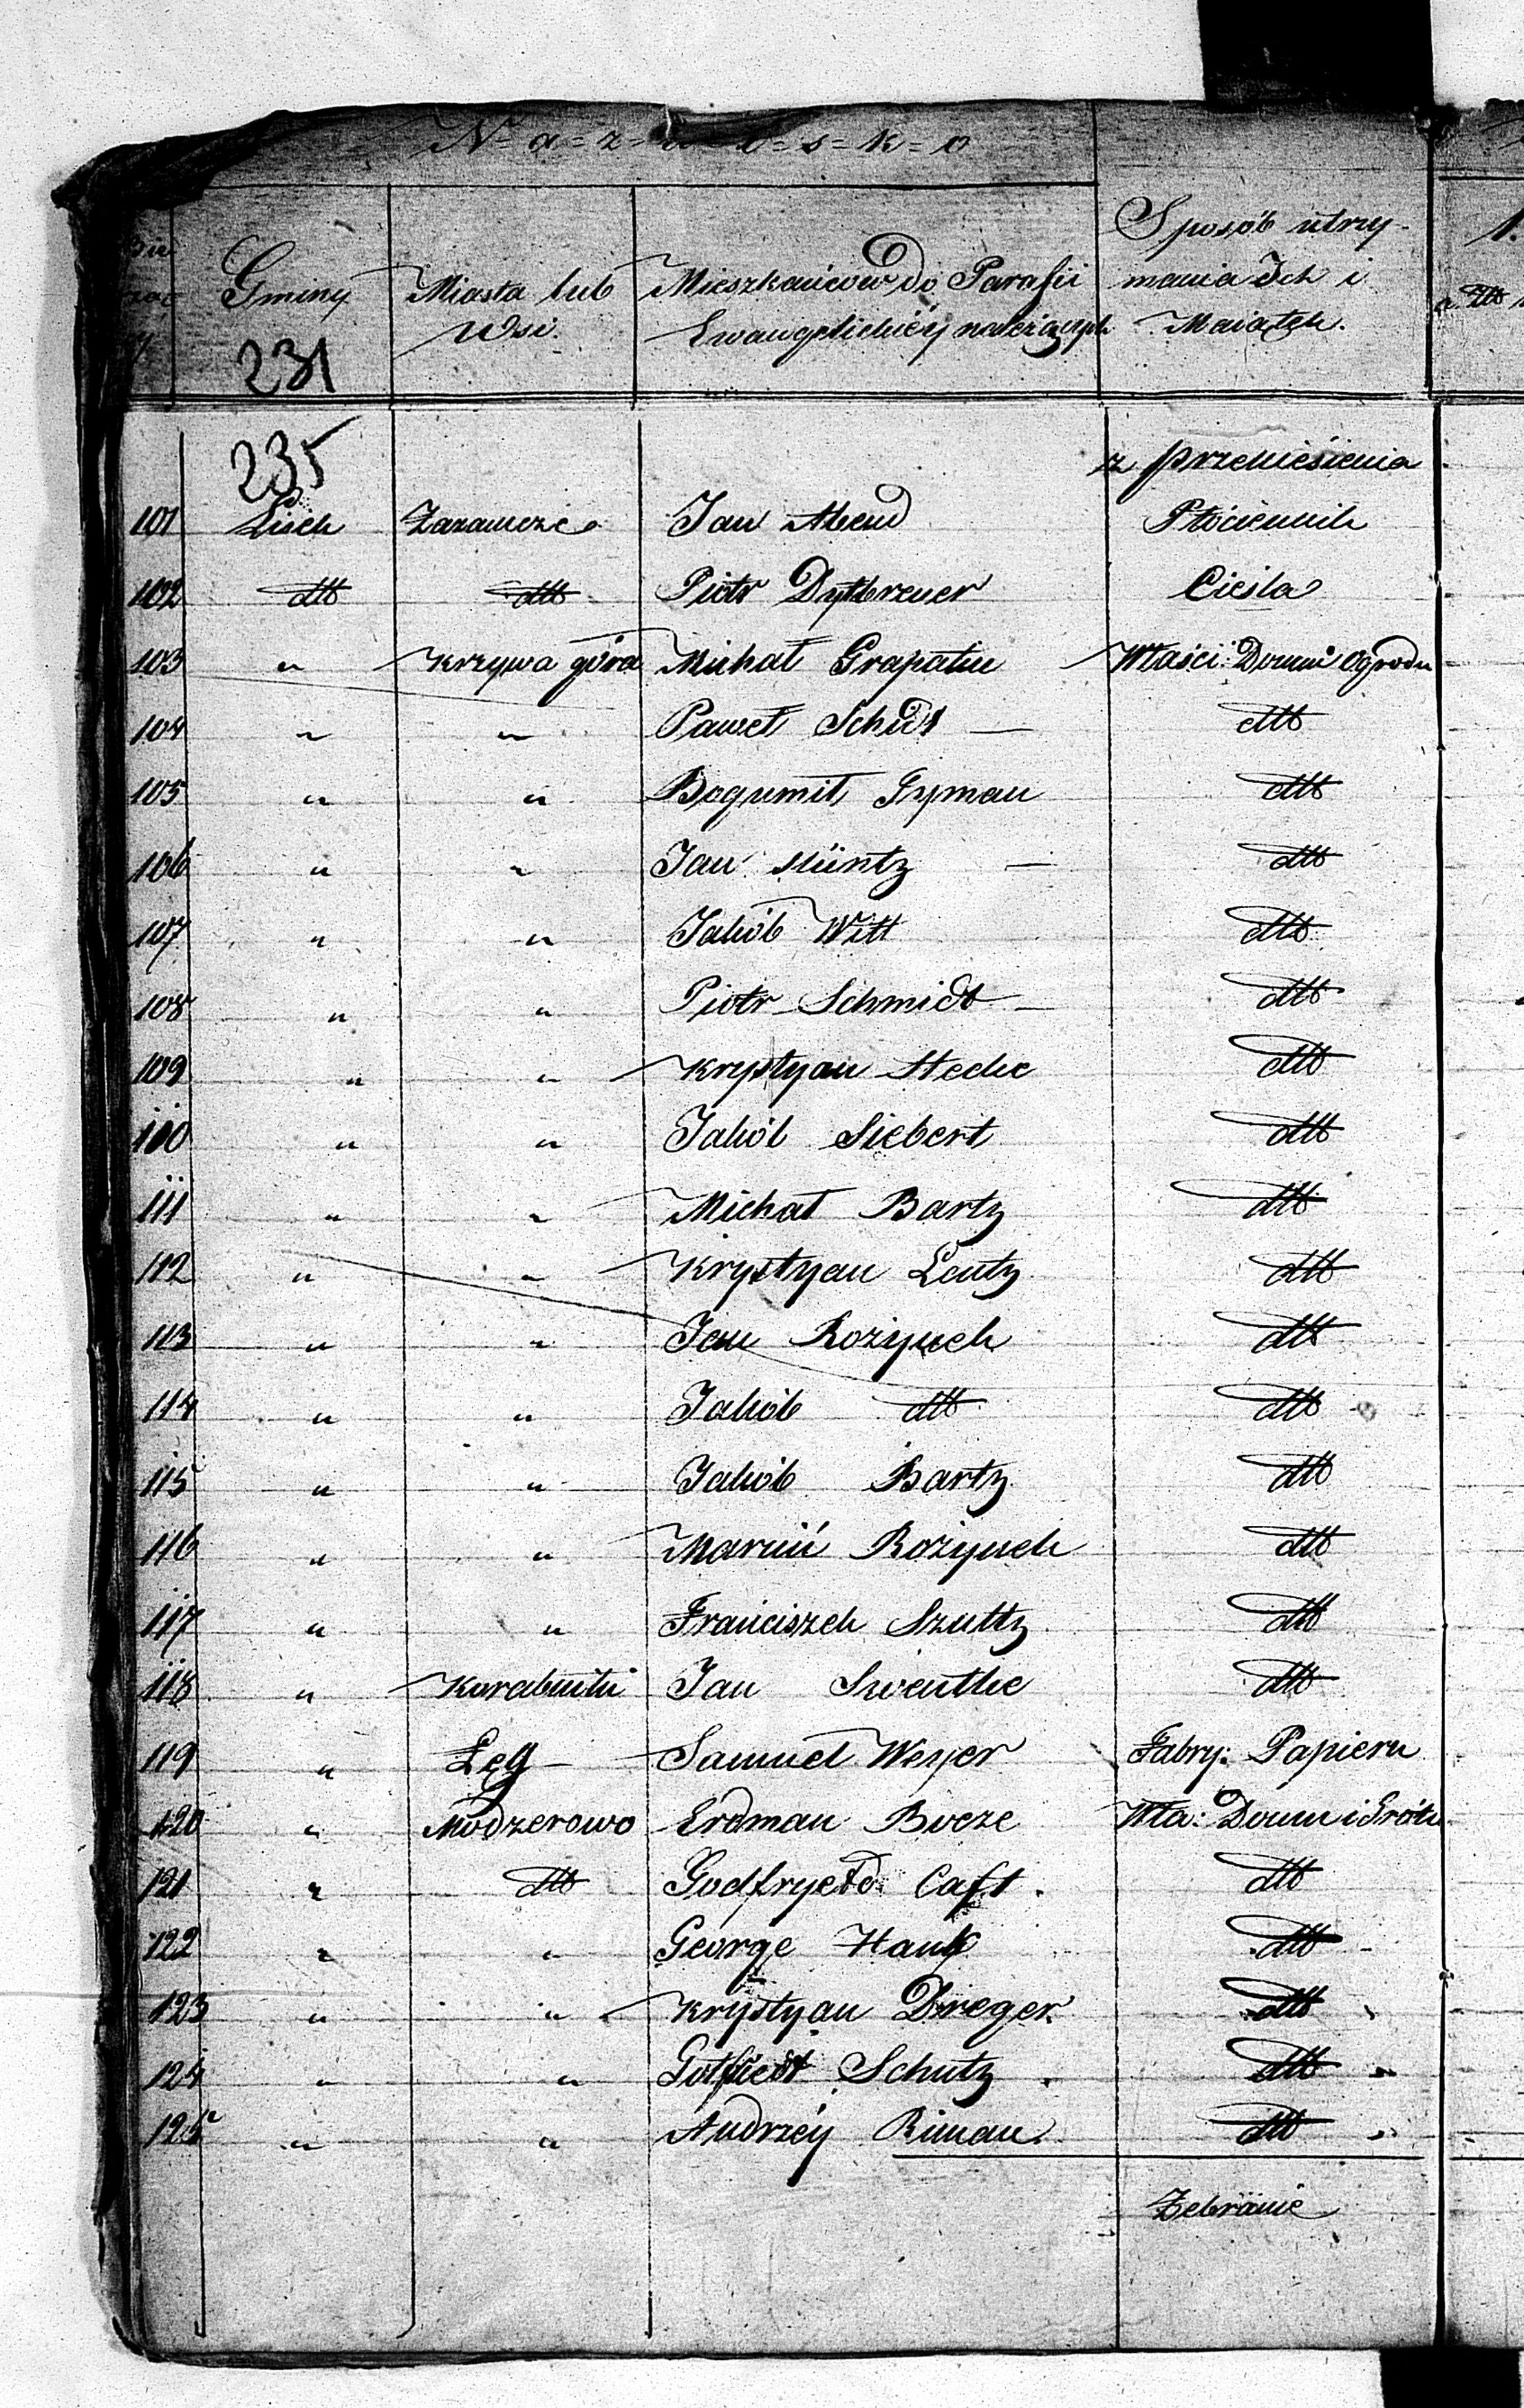 N=a=z=w=i=s=k=o
Gminy
Miasta lub
Wsi.
Mieszkańcow do Parafii
Ewangelickiéy należących
Sposób utrzy-
mania Ich i
Maiątek.
1.
231
235
z przeniésienia
101 Lisek Zazamcze Jan Abend Płóciennik
102 dtt dtt Piotr Dytbrener Cieśla
103 " Krzywa góra Michał Grapatin Właści: Domu i Ogrodu
104 " " Paweł Schidt — dtt
105 " " Bogumił Tryman dtt
106 " " Jan Müntz — dtt
107 " " Jakób Witt dtt
108 " " Piotr Schmidt — dtt
109 " " Krystyan Hecke dtt
110 " " Jakób Siebert dtt
111 " " Michał Bartz dtt
112 " " Krystyan Lentz dtt
113 " " Jan Rożynek dtt
114 " " Jakób dtt dtt
115 " " Jakób Bartz dtt
116 " " Marciń Rożynek dtt
117 " " Franciszek Szultz dtt
118 " Korabniki Jan Szwentke dtt
119 " Łęg — Samuel Weyer Fabry: Papieru
120 " Modzerowo Erdman Bocze Wła: Domu i Gróntu
121 " dtt Godfryed Caft. dtt
122 " " George Hauk dtt
123 " " Krystyan Dreger. dtt
124 " " Gotfriedt Schutz. dtt
125 " " Andrzéy Riman. dtt
Zebranie